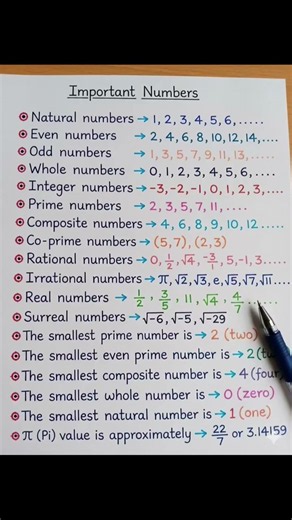 Important Numbers
Natural numbers → 1, 2, 3, 4, 5, 6, .....
Even numbers → 2, 4, 6, 8, 10, 12, 14, ....
Odd numbers → 1, 3, 5, 7, 9, 11, 13, .....
Whole numbers → 0, 1, 2, 3, 4, 5, 6, ....
Integer numbers → -3, -2, -1, 0, 1, 2, 3, ....
Prime numbers → 2, 3, 5, 7, 11, ....
Composite numbers → 4, 6, 8, 9, 10, 12 .....
Co-prime numbers → (5, 7), (2, 3)
Rational numbers → 0, 1/2, √4, -3/1, 5, -1, 3 .....
Irrational numbers → π, √2, √3, e, √5, √7, √11 ....
Real numbers → 1/2, 3/5, 11, √4, 4/7 .....
Surreal numbers → √-6, √-5, √-29
The smallest prime number is → 2 (two)
The smallest even prime number is → 2 (tw
The smallest composite number is → 4 (four)
The smallest whole number is → 0 (zero)
The smallest natural number is → 1 (one)
π (Pi) value is approximately → 22/7 or 3.14159